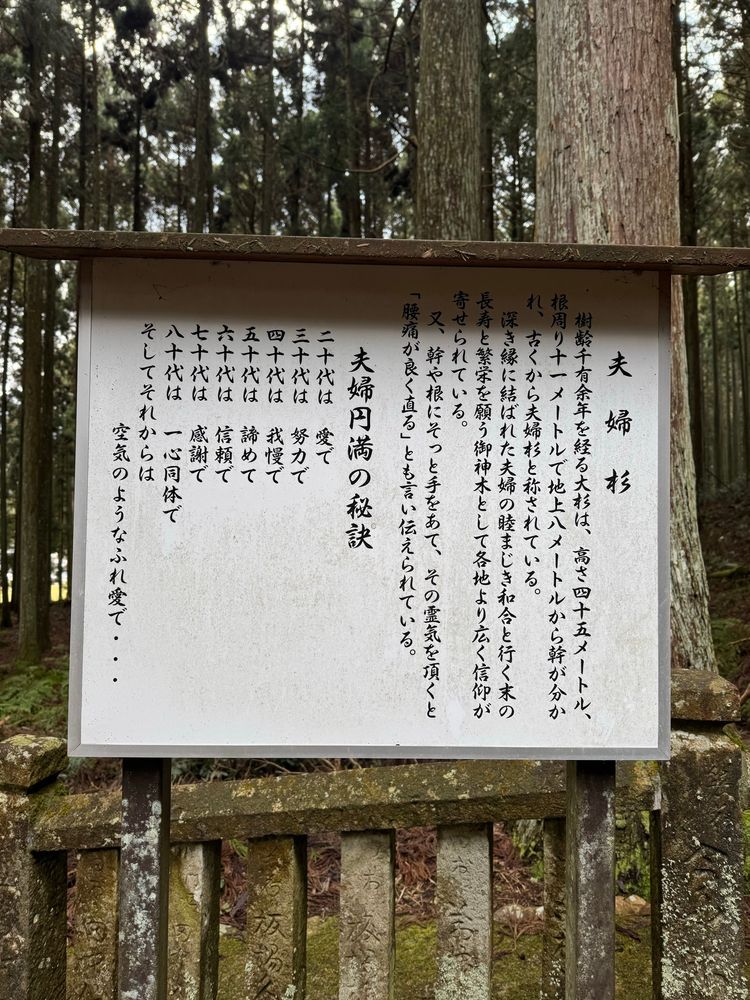 夫婦杉
樹齢千有余年を経る大杉は、高さ四十五メートル、
根周り十一メートルで地上八メートルから幹が分か
れ、古くから夫婦杉と称されている。
深き縁に結ばれた夫婦の睦まじき和合と行く末の
長寿と繁栄を願う御神木として各地より広く信仰が
寄せられている。
又、幹や根にそっと手をあて、その霊気を頂くと
「腰痛が良く直る」とも言い伝えられている。
夫婦円満の秘訣
二十代は 愛で
三十代は 努力で
四十代は 我慢で
五十代は 諦めて
六十代は 信頼で
七十代は 感謝で
八十代は 一心同体で
そしてそれからは
空気のようなふれ愛で・・・